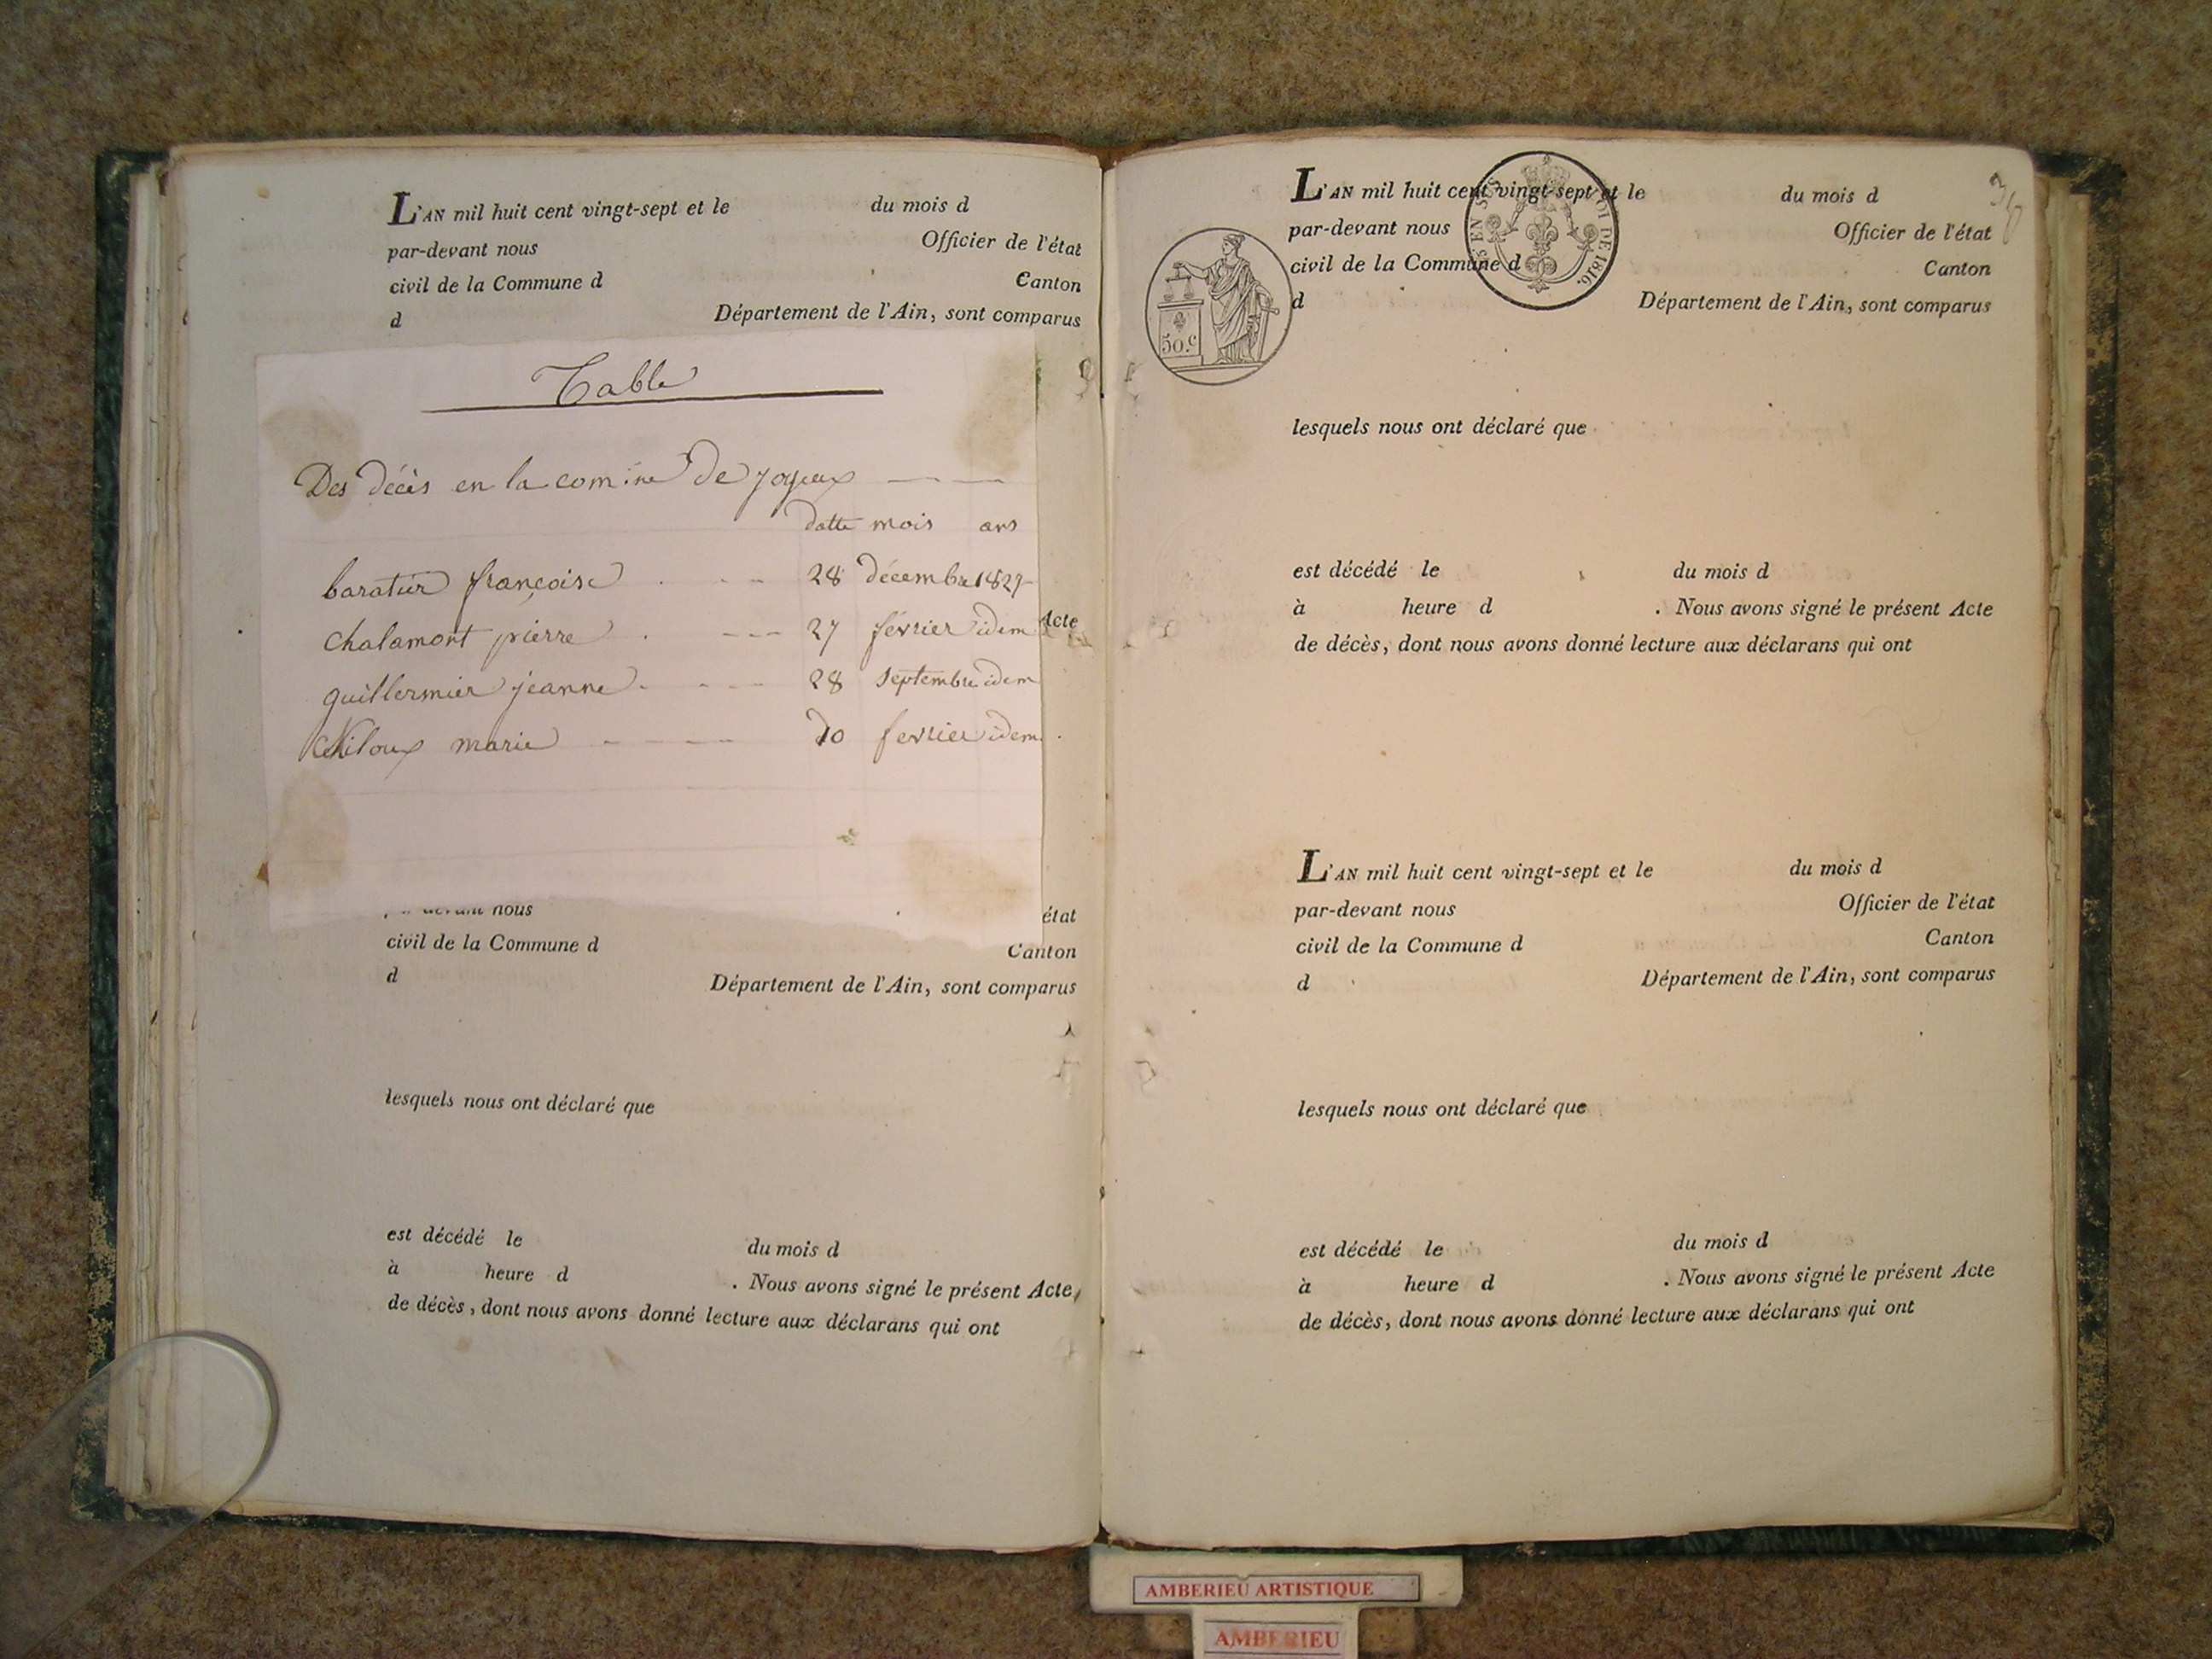 L'AN mil huit cent vingt-sept et le du mois d
par-devant nous Officier de l'état
civil de la Commune d Canton
d Département de l'Ain, sont comparus
Table
Des décès en la comune de joyeux
datte mois ans
baratier françoise 28 décembre 1827
chalamont pierre 27 février idem
Acte
guillermier jeanne 28 septembre idem
marie fevrier idem
nous
état
civil de la Commune d Canton
d Département de l'Ain, sont comparus
lesquels nous ont déclaré que
est décédé le du mois d
à heure d . Nous avons signé le présent Acte
de décès, dont nous avons donné lecture aux déclarans qui ont
38
L'AN mil huit cent vingt-sept et le du mois d
par-devant nous Officier de l'état
civil de la Commune d Canton
d Département de l'Ain, sont comparus
EN SUS LOI DE 1816.
50.c
lesquels nous ont déclaré que
est décédé le du mois d
à heure d . Nous avons signé le présent Acte
de décès, dont nous avons donné lecture aux déclarans qui ont
L'AN mil huit cent vingt-sept et le du mois d
par-devant nous Officier de l'état
civil de la Commune d Canton
d Département de l'Ain, sont comparus
lesquels nous ont déclaré que
est décédé le du mois d
à heure d . Nous avons signé le présent Acte
de décès, dont nous avons donné lecture aux déclarans qui ont
AMBERIEU ARTISTIQUE
AMBERIEU